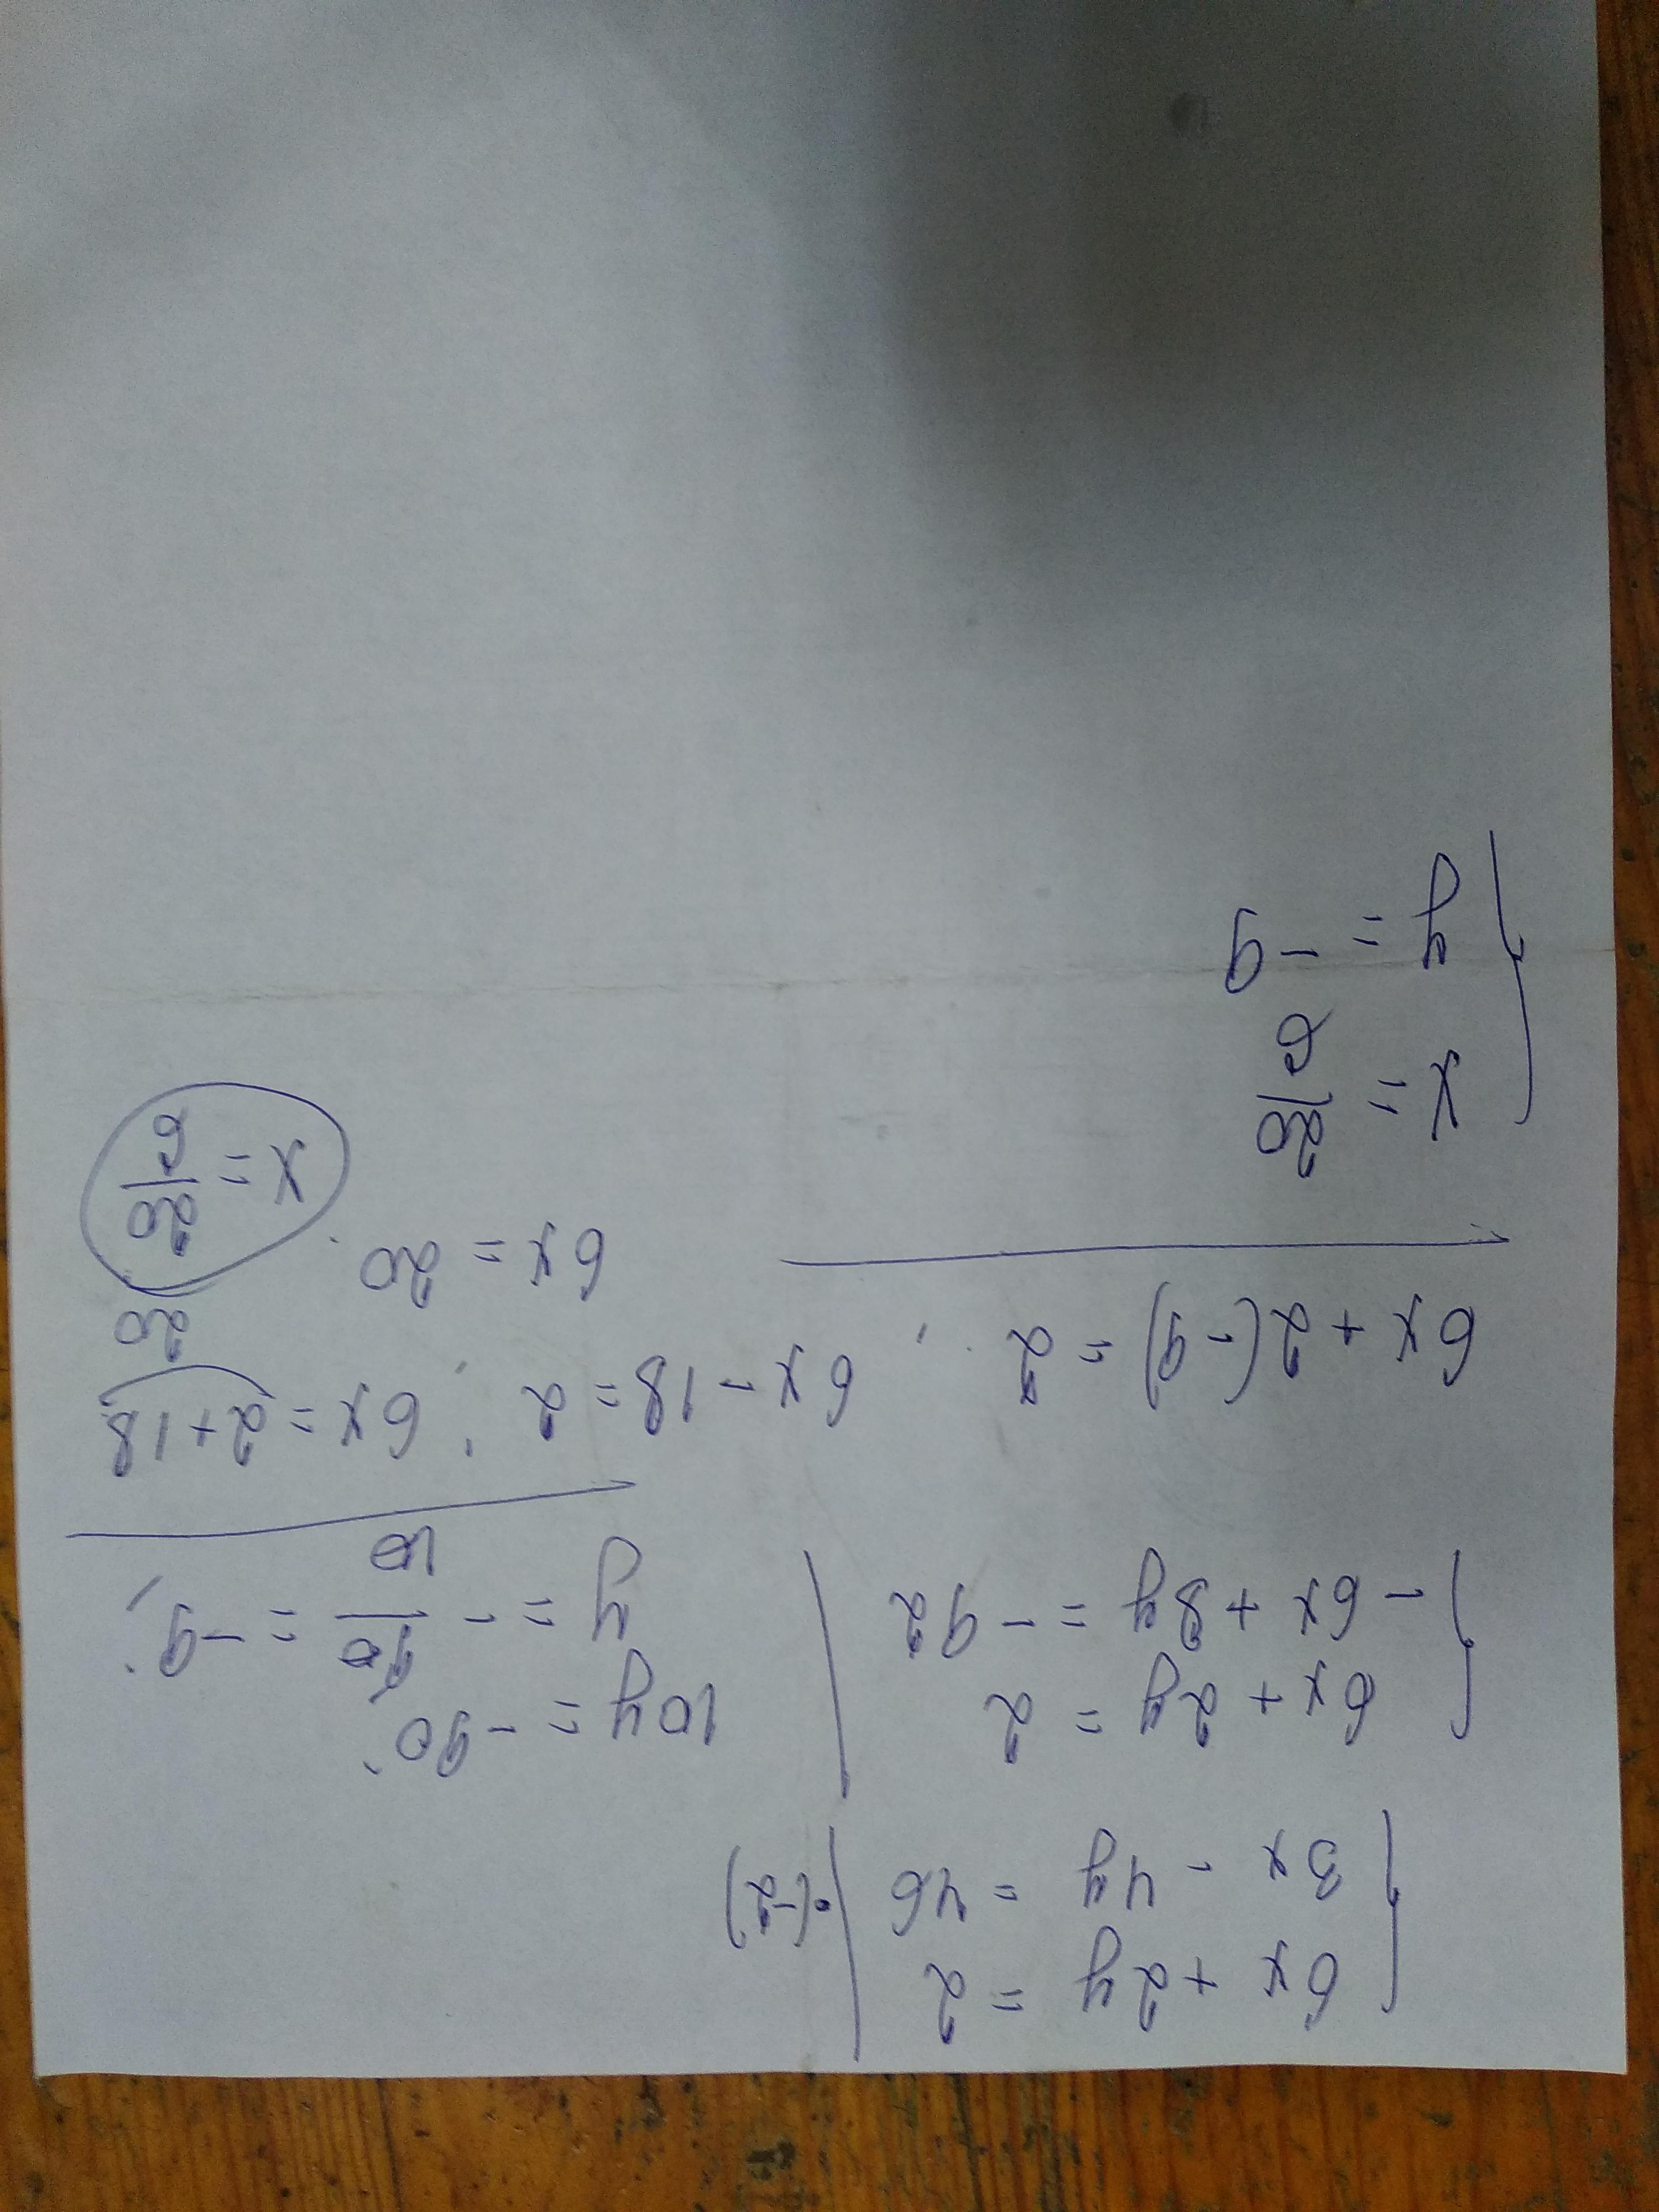 6x + 2y = 2
3x - 4y = 46 | ·(-2)
6x + 2y = 2
-6x + 8y = -92
10y = -90
y = -90/10 = -9
6x + 2(-9) = 2; 6x - 18 = 2; 6x = 2 + 18
20
6x = 20
x = 20/6
x = 20/6
y = -9